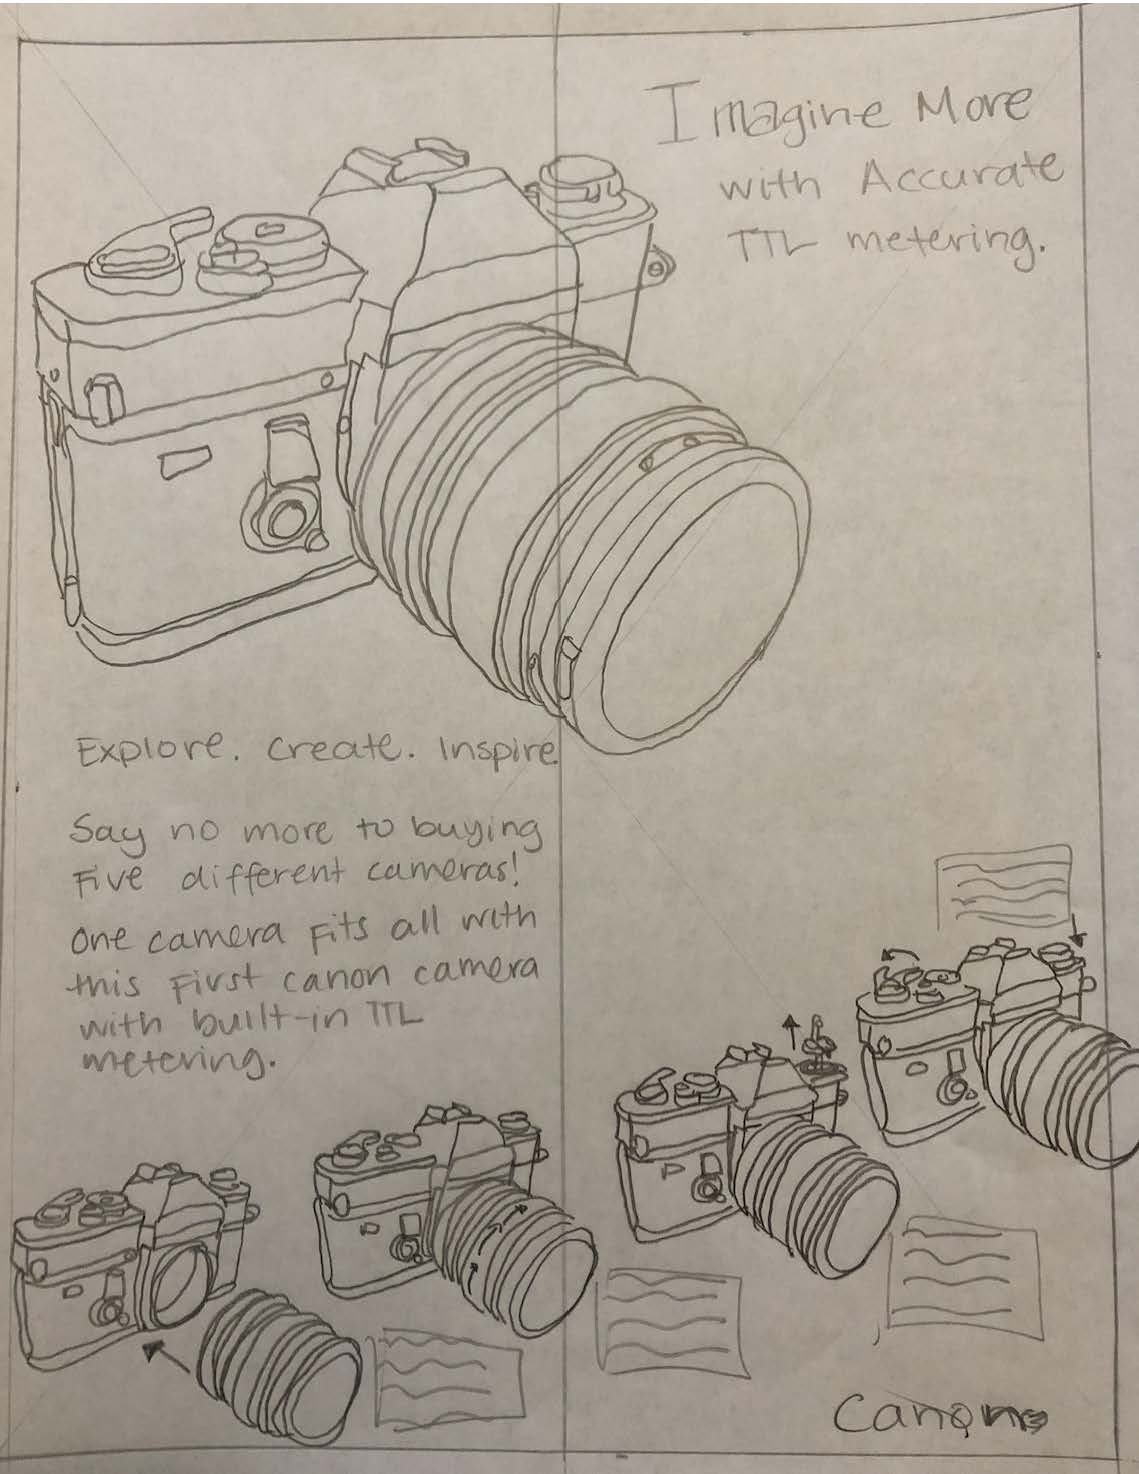 Imagine More
with Accurate
TTL metering.
Explore. Create. Inspire.
Say no more to buying
Five different cameras!
One camera fits all with
this First canon camera
with built-in TTL
metering.
Canon